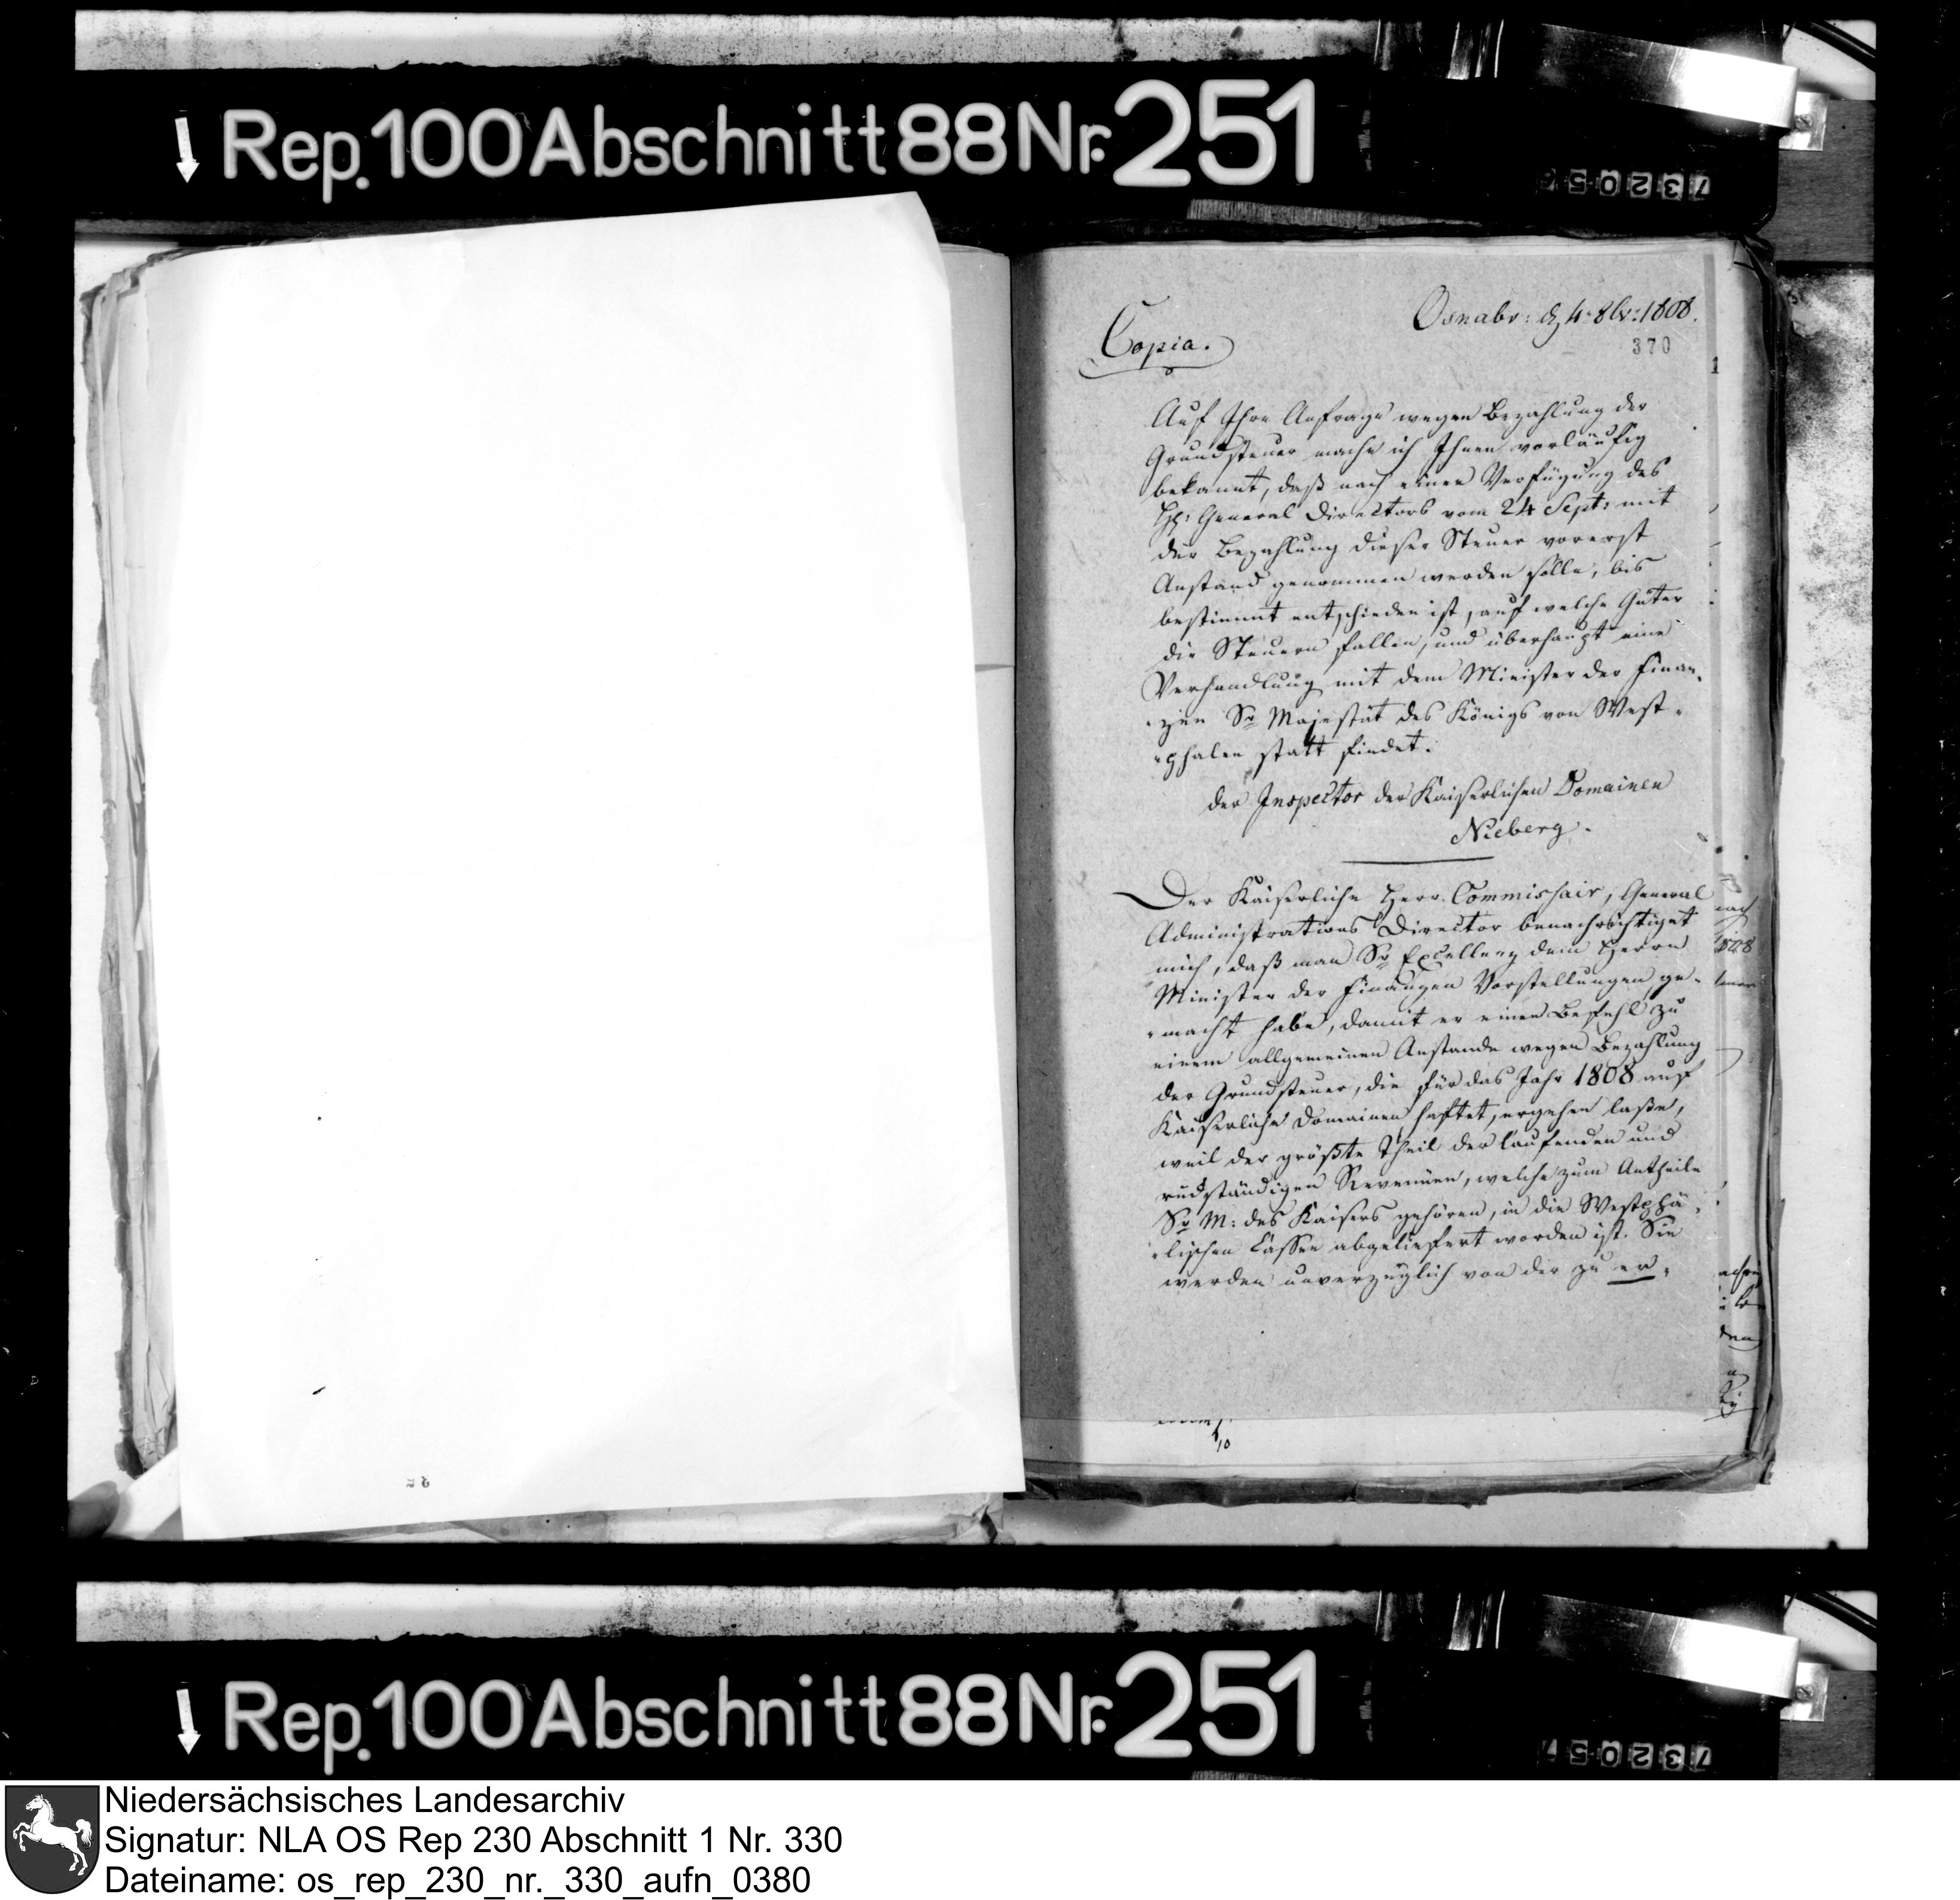 Rep. 100 Abschnitt 88 Nr. 251
Copia.
Osnabr: d 4 8br: 1808.
370
Auf Ihre Anfrage wegen Bezahlung der
Grundsteuer mache ich Ihnen vorläufig
bekannt, daß nach einer Verfügung des
H: General Directors vom 24 Sept: mit
der Bezahlung dieser Steuer vorerst
Anstand genommen werden solle, bis
bestimmt entschieden ist, auf welche Güter
die Steuern fallen, und überhaupt eine
Verhandlung mit dem Minister der Finan-
zen Sr Majestät des Königs von West-
phalen statt findet.
der Inspector der Kaiserlichen Domainen
Nieberg.
Der Kaiserliche Herr Commissair, General
Administrations Director benachrichtiget
mich, daß man Sr Excellenz dem Herrn
Minister der Finanzen Vorstellungen ge-
macht habe, damit er einen Befehl zu
einem allgemeinen Anstande wegen Bezahlung
der Grundsteuer, die für das Jahr 1808 auf
Kaiserliche Domainen haftet, ergehen laße,
weil der größte Theil der laufenden und
rückständigen Revenüen, welche zum Antheile
Sr M: des Kaisers gehören, in die Westphä-
lischen Cassen abgeliefert worden ist. Sie
werden unverzüglich von der zu er-
10
Rep. 100 Abschnitt 88 Nr. 251
Niedersächsisches Landesarchiv
Signatur: NLA OS Rep 230 Abschnitt 1 Nr. 330
Dateiname: os_rep_230_nr._330_aufn_0380